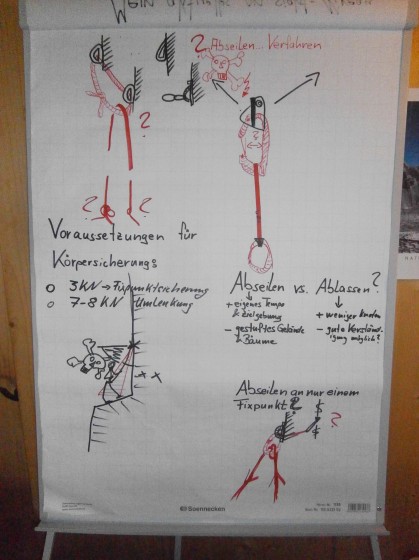 ? Abseilen... Verfahren
?
?
?
Voraussetzungen für
Körpersicherungs
3 KN → Fixpunktsicherung
7-8 KN Umlenkung
Abseilen vs. Ablassen?
+ eigenes Tempo
& Zielgebung
- gestuftes Gelände
+ Bäume
+ weniger Knoten
- gute Verständ-
igung möglich?
Abseilen an nur einem
Fixpunkt?
?
Soennecken